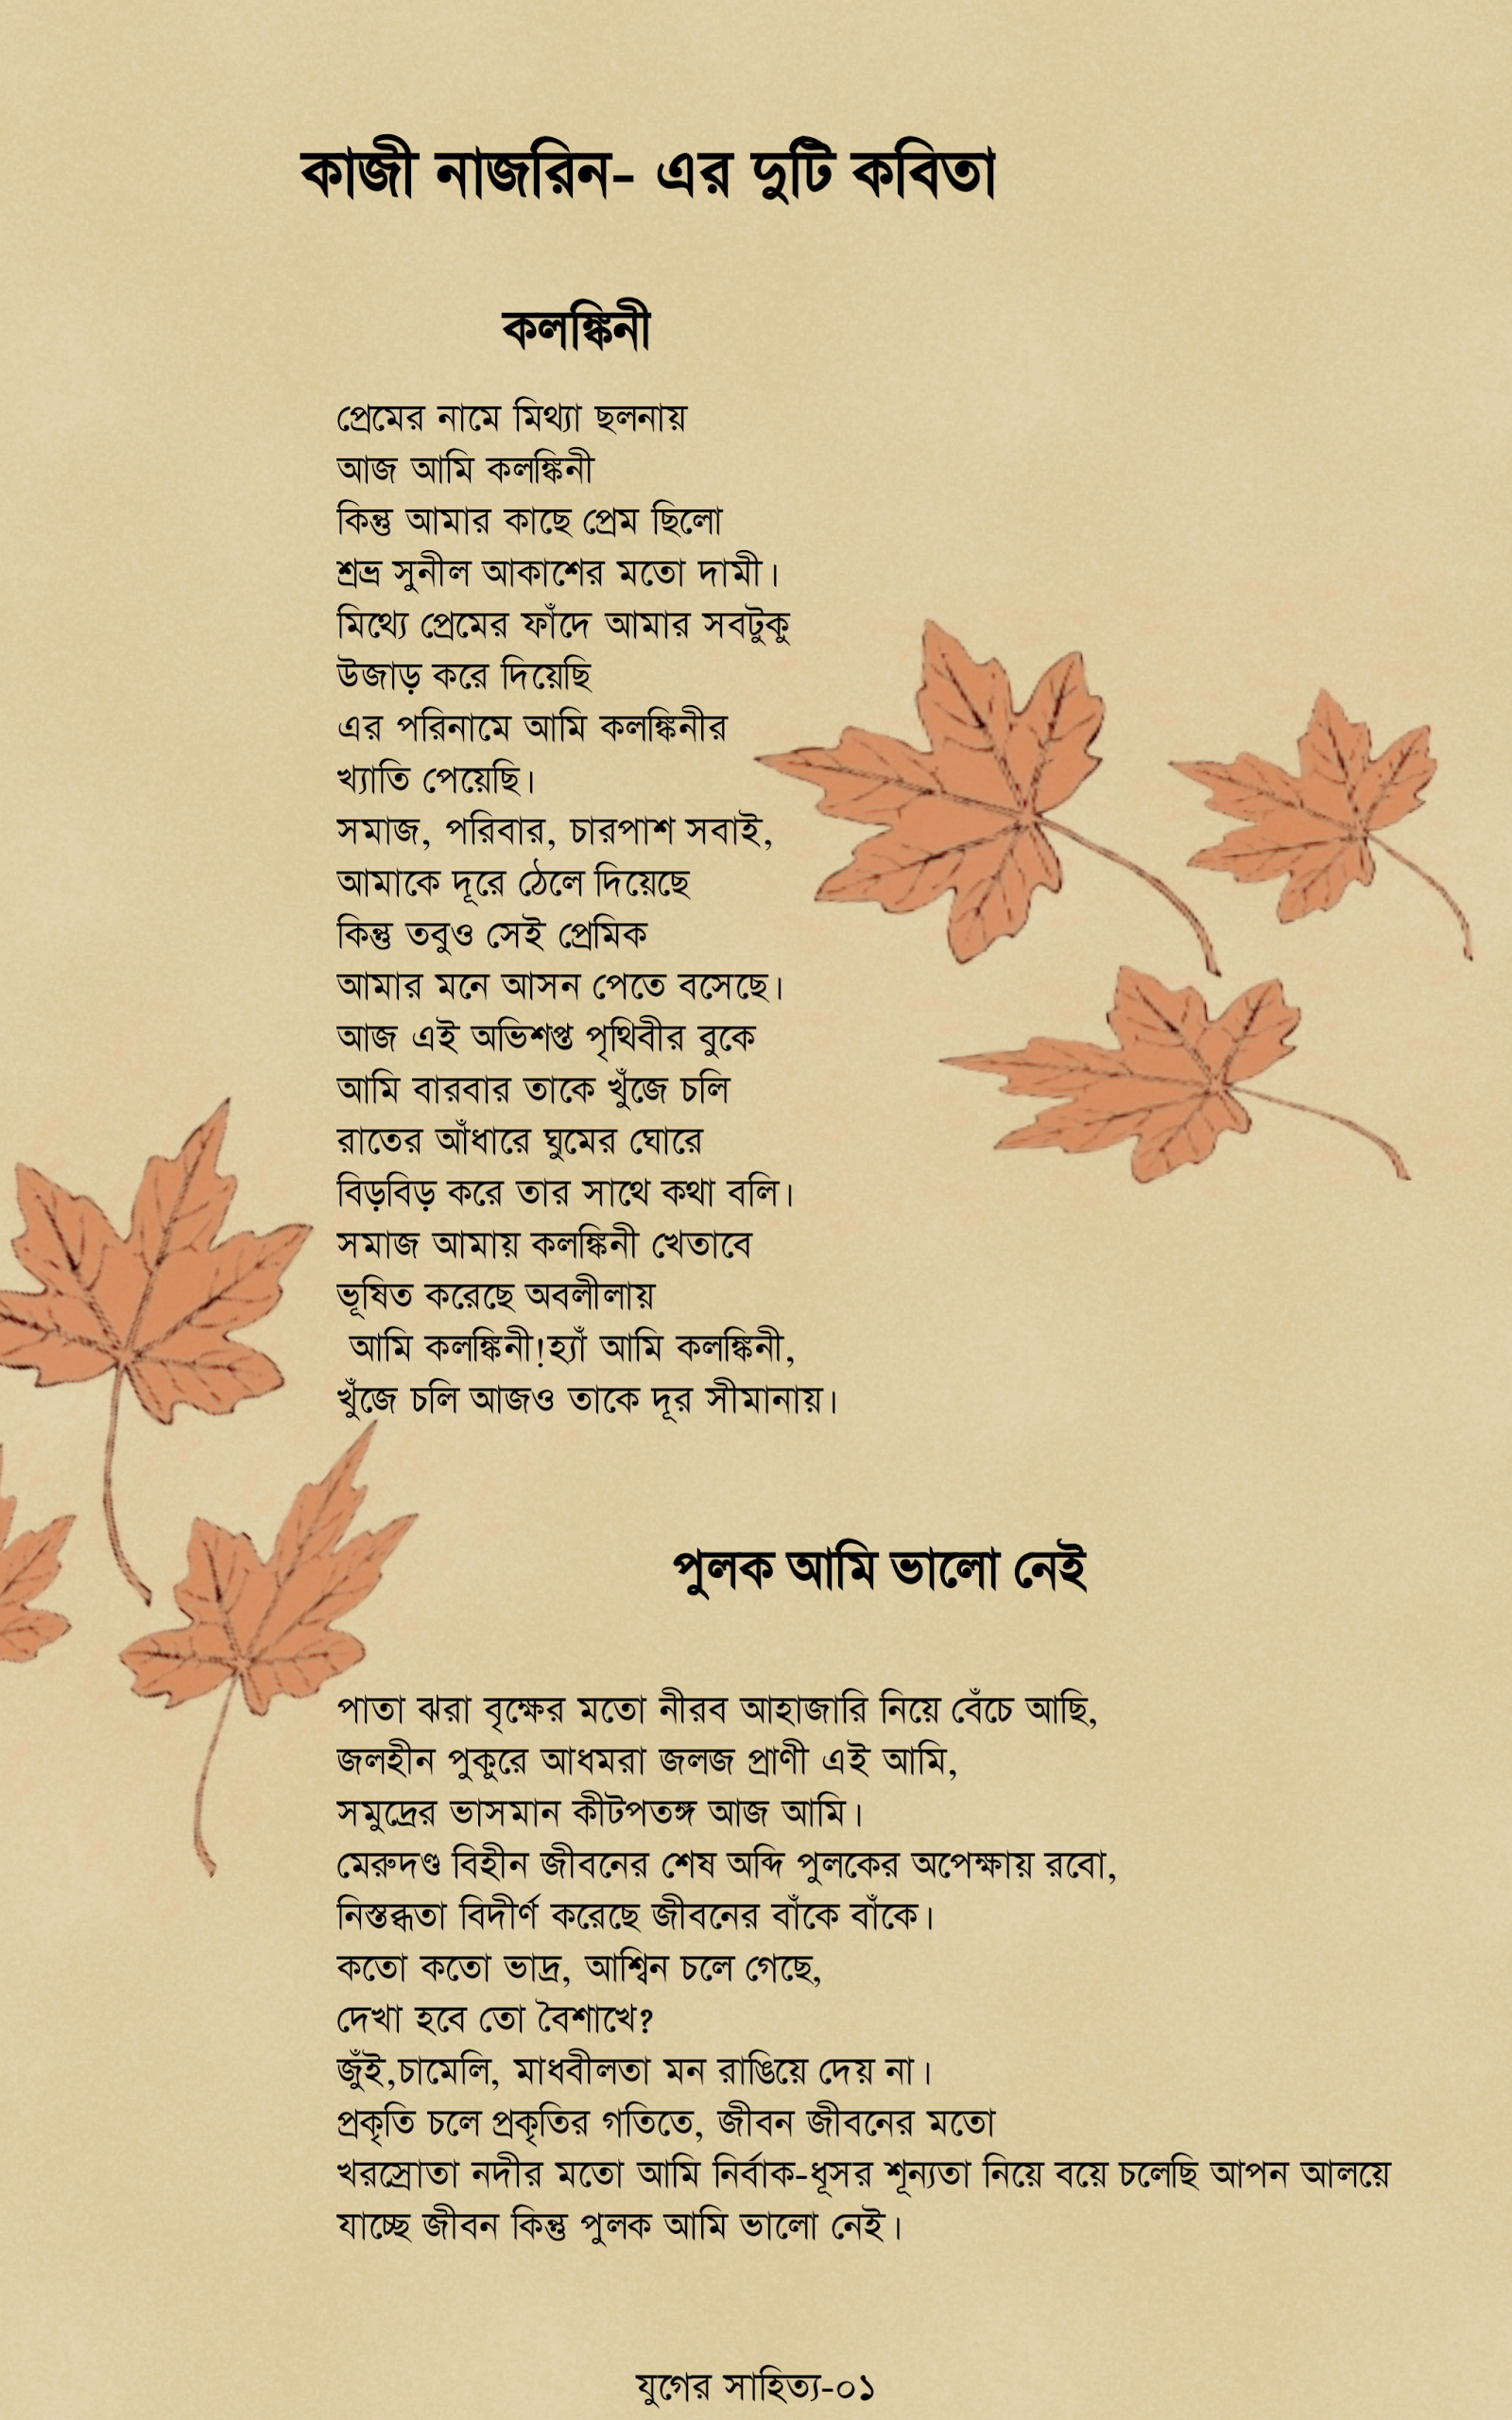 কাজী নাজরিন- এর দুটি কবিতা
কলঙ্কিনী
প্রেমের নামে মিথ্যা ছলনায়
আজ আমি কলঙ্কিনী
কিন্তু আমার কাছে প্রেম ছিলো
শ্রভ্র সুনীল আকাশের মতো দামী।
মিথ্যে প্রেমের ফাঁদে আমার সবটুকু
উজাড় করে দিয়েছি
এর পরিনামে আমি কলঙ্কিনীর
খ্যাতি পেয়েছি।
সমাজ, পরিবার, চারপাশ সবাই,
আমাকে দূরে ঠেলে দিয়েছে
কিন্তু তবুও সেই প্রেমিক
আমার মনে আসন পেতে বসেছে।
আজ এই অভিশপ্ত পৃথিবীর বুকে
আমি বারবার তাকে খুঁজে চলি
রাতের আঁধারে ঘুমের ঘোরে
বিড়বিড় করে তার সাথে কথা বলি।
সমাজ আমায় কলঙ্কিনী খেতাবে
ভূষিত করেছে অবলীলায়
আমি কলঙ্কিনী!হ্যাঁ আমি কলঙ্কিনী,
খুঁজে চলি আজও তাকে দূর সীমানায়।
পুলক আমি ভালো নেই
পাতা ঝরা বৃক্ষের মতো নীরব আহাজারি নিয়ে বেঁচে আছি,
জলহীন পুকুরে আধমরা জলজ প্রাণী এই আমি,
সমুদ্রের ভাসমান কীটপতঙ্গ আজ আমি।
মেরুদণ্ড বিহীন জীবনের শেষ অব্দি পুলকের অপেক্ষায় রবো,
নিস্তব্ধতা বিদীর্ণ করেছে জীবনের বাঁকে বাঁকে।
কতো কতো ভাদ্র, আশ্বিন চলে গেছে,
দেখা হবে তো বৈশাখে?
জুঁই,চামেলি, মাধবীলতা মন রাঙিয়ে দেয় না।
প্রকৃতি চলে প্রকৃতির গতিতে, জীবন জীবনের মতো
খরস্রোতা নদীর মতো আমি নির্বাক-ধূসর শূন্যতা নিয়ে বয়ে চলেছি আপন আলয়ে
যাচ্ছে জীবন কিন্তু পুলক আমি ভালো নেই।
যুগের সাহিত্য-০১